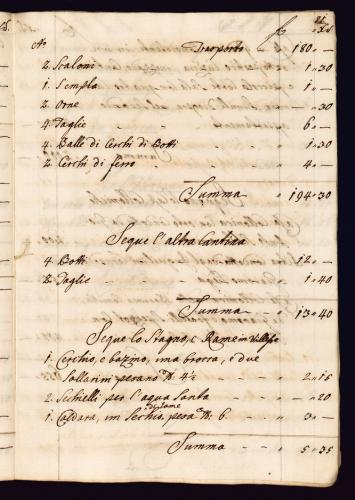 No Trasporto f 180 „ —
2. Scaloni „ 1 „ 30
1. Sempla „ 1 „ —
2. Orne „ — „ 30
4. Taglie „ 6 „ —
4. Balle di Cerchi di Botti „ 1 „ 30
2. Cerchi di ferro „ 4 „ —
Summa „ 194 „ 30
Segue l'altra Cantina
4. Botti „ 12 „ —
2. Taglie „ 1 „ 40
Summa „ 13 „ 40
Segue lo Stagno, e Rame in
1. e una brocca, e due
4½ „ 2 „ 15
2. Sechielli per l'aqua Santa „ — „ 20
di rame
1. Caldara, un Sechio, pesa 6 „ 3 „ —
Summa „ 5 „ 35